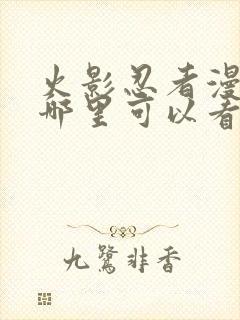 火影忍者漫
哪里可以看
九鹭非香